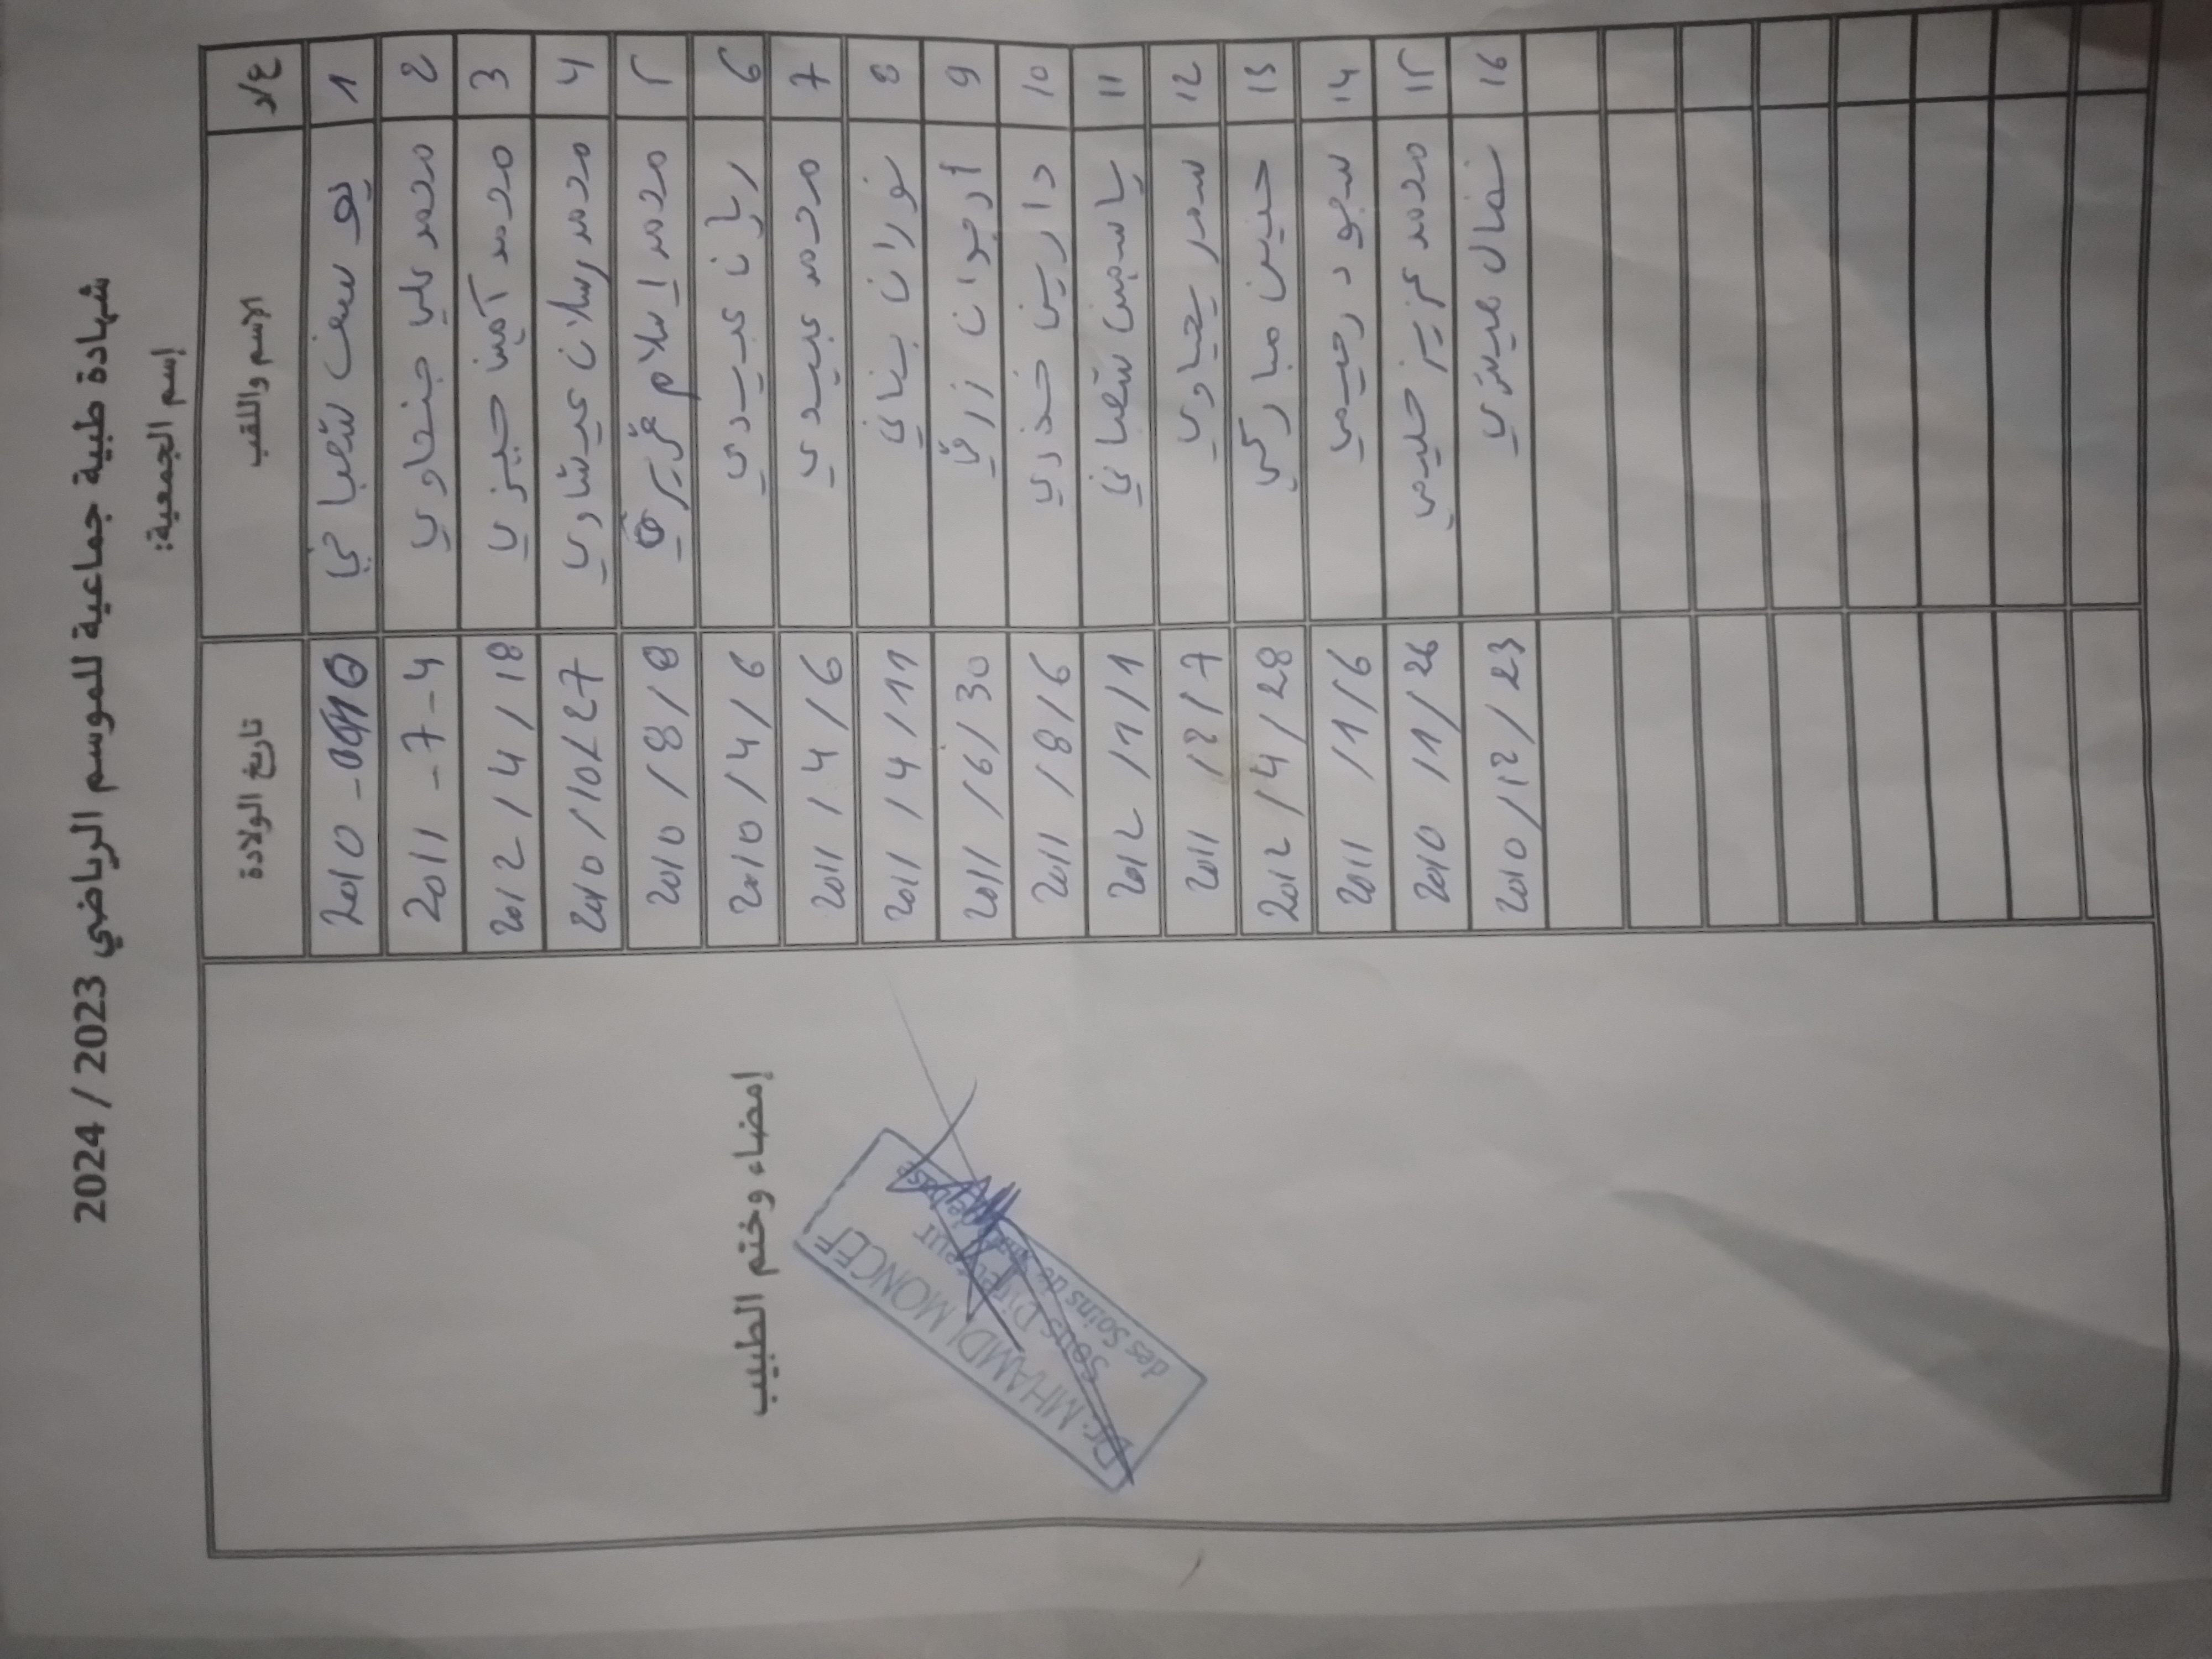 شهادة طبية جماعية للموسم الرياضي 2023 / 2024
إسم الجمعية:
ع/د الاسم واللقب تاريخ الولادة
1 يوسف شعباني 2010 -
2 محمد علي جنحاوي 2011 - 7 - 4
3 محمد أمين 2012 / 4 / 18
4 محمد رسلان عيشاوي 2010 / 10 / 27
5 محمد اسلام 2010 / 8 / 8
6 ريان عبيدي 2010 / 4 / 6
7 محمد عبيدي 2011 / 4 / 6
8 نوران بناني 2011 / 4 / 11
9 أرجوان زرقي 2011 / 6 / 30
10 دارين خذري 2011 / 8 / 6
11 ياسمين شعباني 2012 / 1 / 1
12 سمر يحياوي 2011 / 2 / 7
13 حنين مباركي 2012 / 4 / 28
14 سجود رحيمي 2011 / 1 / 6
15 محمد عزيز حليمي 2010 / 11 / 26
16 نضال 2010 / 12 / 23
إمضاء وختم الطبيب
Dr. MHAMDI MONCEF
Sous Directeur
des Soins de Santé de Base